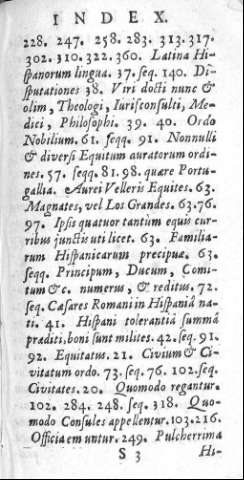 INDEX.
228. 247. 258. 283. 313. 317.
302. 310. 322. 360. Latina Hi-
spanorum lingua. 37. seq. 140. Di-
sputationes 38. Viri docti nunc &
olim, Theologi, Iurisconsulti, Me-
dici, Philosophi. 39. 40. Ordo
Nobilium. 61. seqq. 91. Nonnulli
& diversi Equitum auratorum ordi-
nes. 57. seqq. 81. 98. quære Portu-
gallia. Aurei Velleris Equites. 63.
Magnates, vel Los Grandes. 63. 76.
97. Ipsis quatuor tantùm equis cur-
ribus junctis uti licet. 63. Familia-
rum Hispanicarum præcipuæ. 63.
seqq. Principum, Ducum, Comi-
tum &c. numerus, & reditus. 72.
seq. Cæsares Romani in Hispaniâ na-
ti. 41. Hispani tolerantiâ summâ
præditi, boni sunt milites. 42. seq. 91.
92. Equitatus. 21. Civium & Ci-
vitatum ordo. 73. seq. 76. 102. seq.
Civitates. 20. Quomodo regantur.
102. 284. 248. seq. 318. Quo-
modo Consules appellentur. 103. 216.
Officia emuntur. 249. Pulcherrima
S 3 Hi-